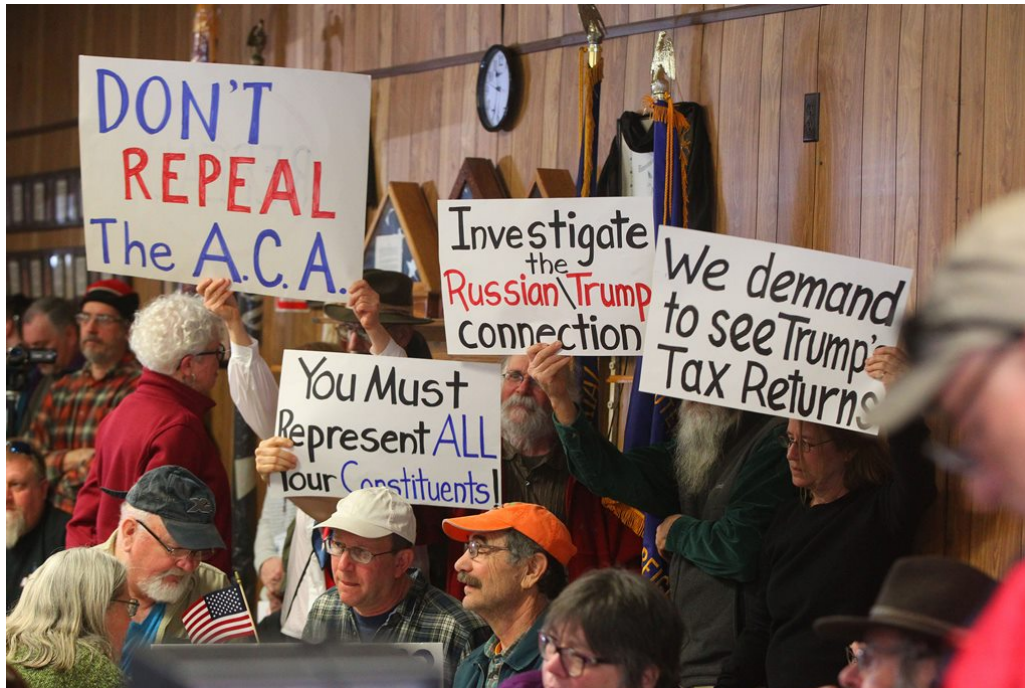 DON'T
REPEAL
The A.C.A.
Investigate
the
Russian\Trump
connection
We demand
to see Trump's
Tax Returns
You Must
Represent ALL
Your Constituents!